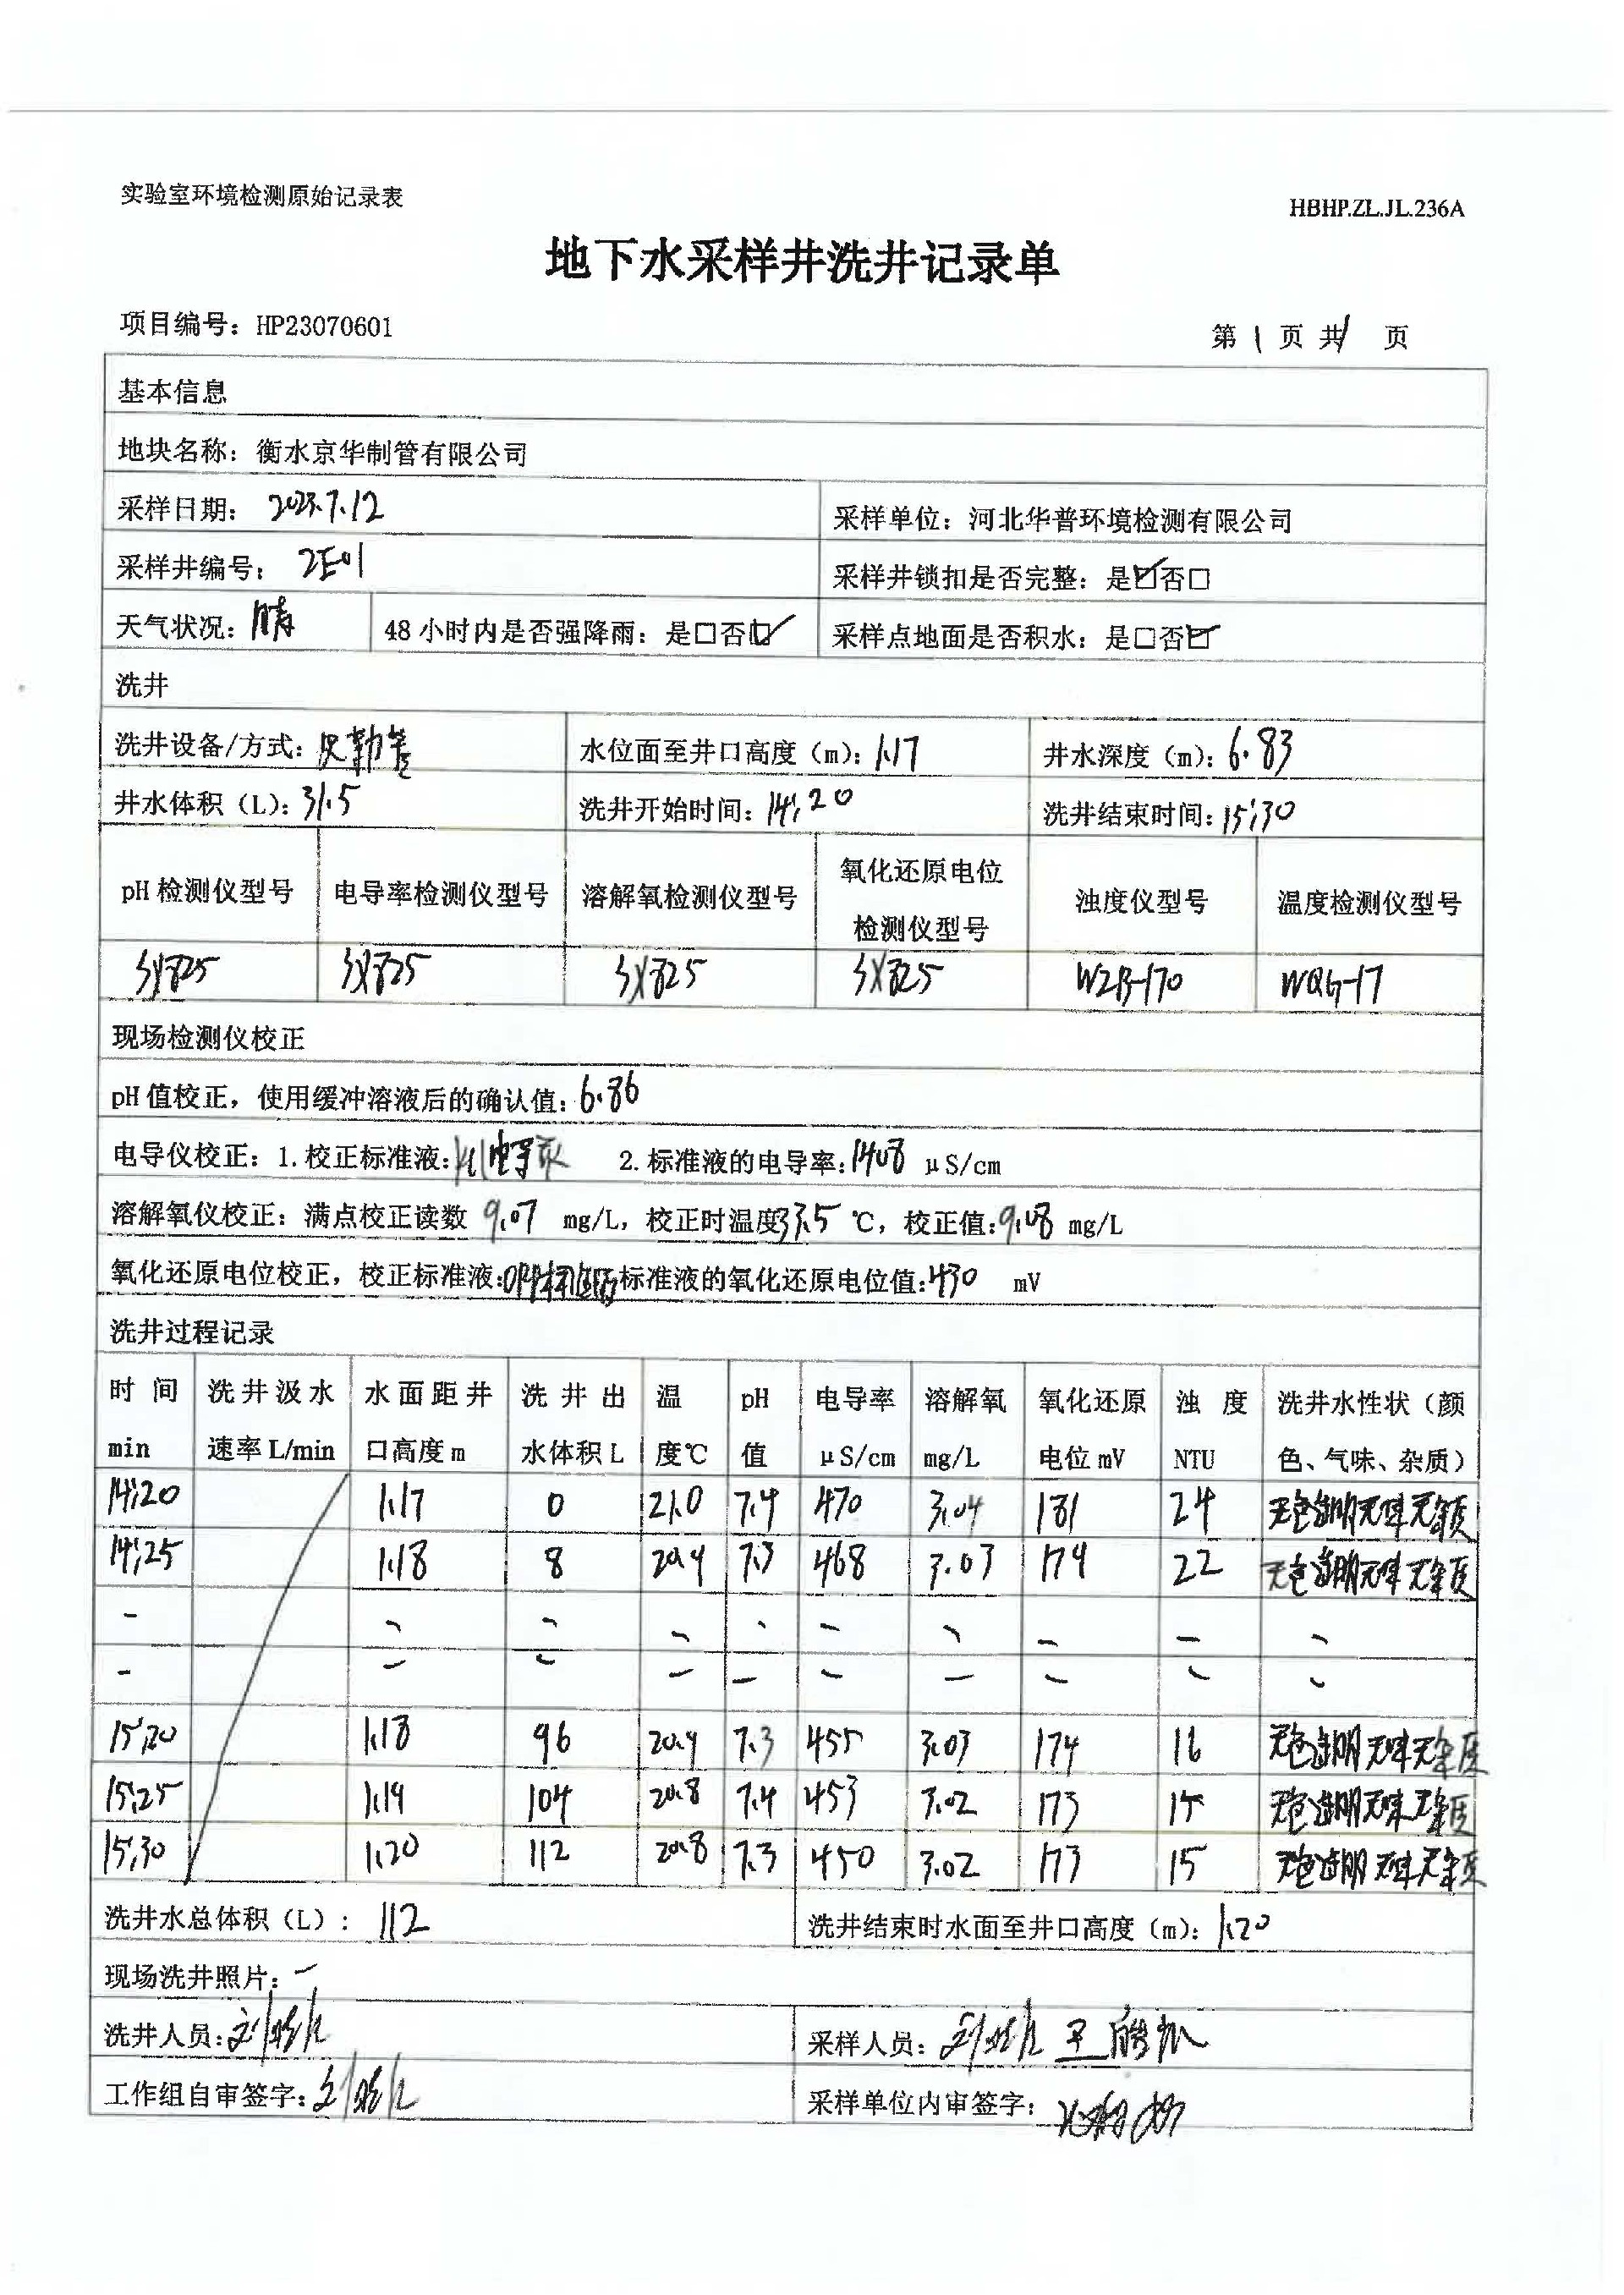 实验室环境检测原始记录表
HBHP.ZL.JL.236A
地下水采样井洗井记录单
项目编号：HP23070601
第 1 页 共 1 页
基本信息
地块名称：衡水京华制管有限公司
采样日期： 2023.7.12 采样单位：河北华普环境检测有限公司
采样井编号： 2E01 采样井锁扣是否完整：是☑否□
天气状况：晴 48 小时内是否强降雨：是□否☑ 采样点地面是否积水：是□否☑
洗井
洗井设备/方式：贝勒管 水位面至井口高度（m）：1.17 井水深度（m）：6.83
井水体积（L）：31.5 洗井开始时间：14:20 洗井结束时间：15:30
pH 检测仪型号 电导率检测仪型号 溶解氧检测仪型号 氧化还原电位检测仪型号 浊度仪型号 温度检测仪型号
SX725 SX725 SX725 SX725 WZB-170 WQG-17
现场检测仪校正
pH 值校正，使用缓冲溶液后的确认值：6.86
电导仪校正：1.校正标准液： 2.标准液的电导率：1408 μS/cm
溶解氧仪校正：满点校正读数 9.07 mg/L，校正时温度33.5 ℃，校正值：9.08 mg/L
氧化还原电位校正，校正标准液： 标准液的氧化还原电位值：430 mV
洗井过程记录
时 间 min 洗井汲水速率 L/min 水面距井口高度 m 洗井出水体积 L 温度℃ pH值 电导率μS/cm 溶解氧mg/L 氧化还原电位 mV 浊度NTU 洗井水性状（颜色、气味、杂质）
14:20 1.17 0 21.0 7.4 470 3.04 181 24 无色透明无味无杂质
14:25 1.18 8 20.9 7.3 468 3.03 179 22 无色透明无味无杂质
- - - - - - - - - -
- - - - - - - - - -
15:20 1.18 96 20.9 7.3 455 3.03 174 16 无色透明无味无杂质
15:25 1.19 104 20.8 7.4 453 3.02 173 15 无色透明无味无杂质
15:30 1.20 112 20.8 7.3 450 3.02 173 15 无色透明无味无杂质
洗井水总体积（L）： 112 洗井结束时水面至井口高度（m）：1.20
现场洗井照片：—
洗井人员： 采样人员：
工作组自审签字： 采样单位内审签字：